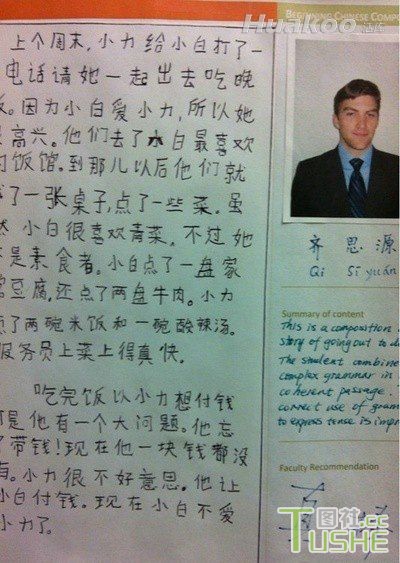 上个周末，小力给小白打了一
电话请她一起出去吃晚
。因为小白爱小力，所以她
高兴。他们去了小白最喜欢
饭馆。到那儿以后他们就
了一张桌子，点了一些菜。虽
小白很喜欢青菜，不过她
是素食者。小白点了一盘家
豆腐，还点了两盘牛肉。小力
了两碗米饭和一碗酸辣汤。
服务员上菜上得真快。
吃完饭以小力想付钱
是他有一个大问题。他忘
带钱！现在他一块钱都没
。小力很不好意思。他让
小白付钱。现在小白不爱
小力了。
BEGINNING CHINESE COMPO
HuaKoo
齐思源
Qi Sīyuán
Summary of content
This is a composition
story of going out to di
The student combine
complex grammar in
coherent passage.
correct use of gram
to express tense is impr
Faculty Recommendation
图社.cc
TUSHE